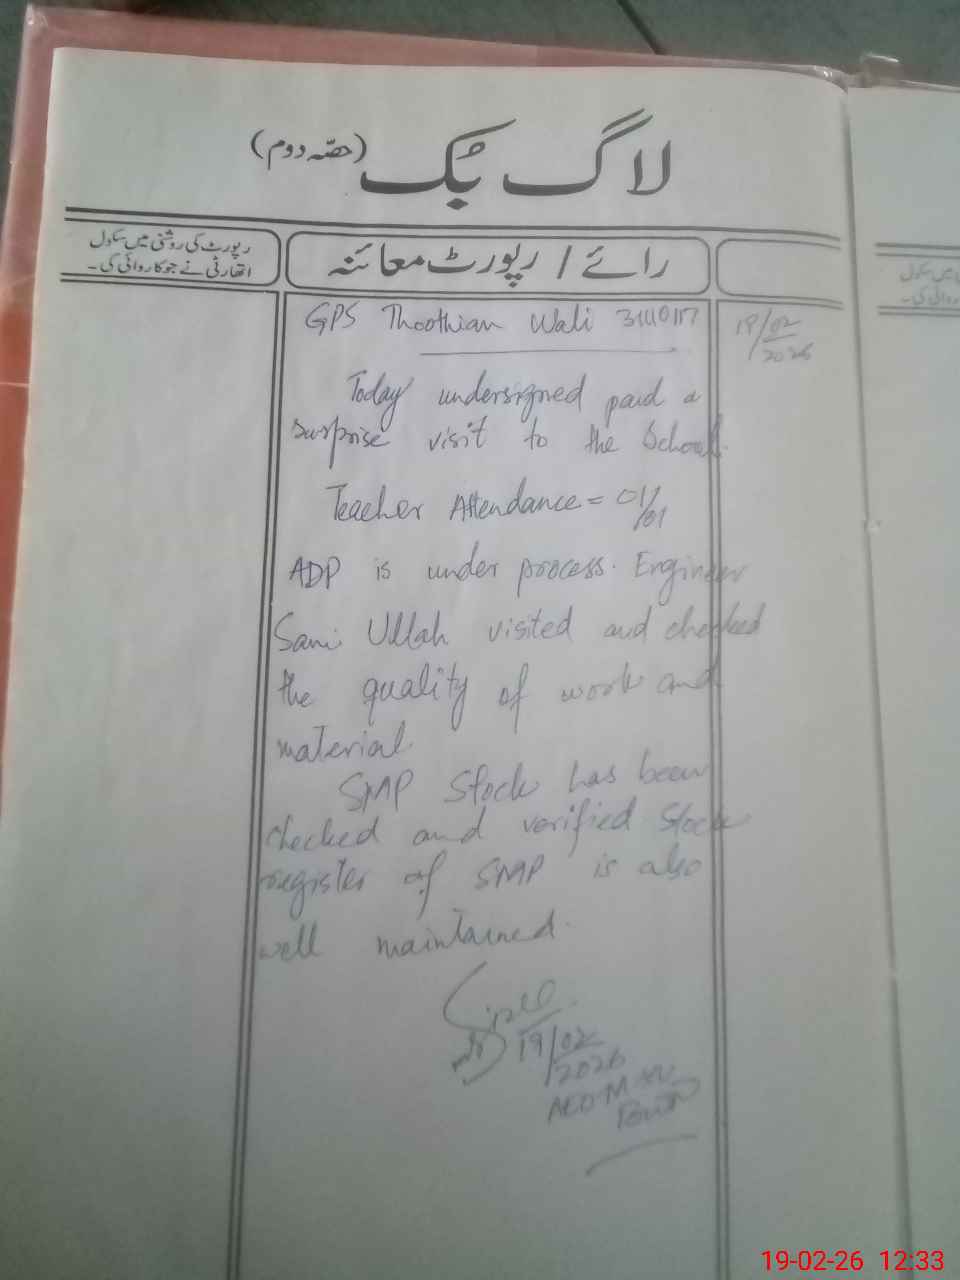 لاگ بُک (حصّہ دوم)
رائے / رپورٹ معائنہ
رپورٹ کی روشنی میں سکول
اتھارٹی نے جو کاروائی کی۔
GPS Thoothian Wali
19/02
2026
Today undersigned paid a
surprise visit to the School.
Teacher Attendance = 01/01
ADP is under process. Engineer
Sami Ullah visited and checked
the quality of work and
material.
SMP Stock has been
checked and verified Stock
register of SMP is also
well maintained.
19/02
2026
AEO M
19-02-26 12:33